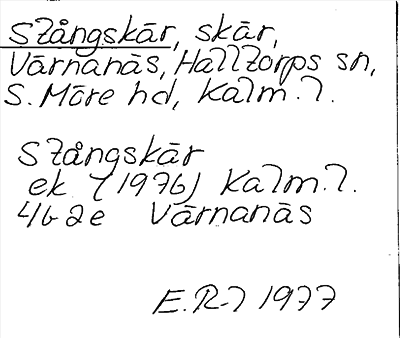 Stångskär, skär,
Värnanäs, Halltorps sn,
S. Möre hd, Kalm. l.
Stångskär
ek. (1976) Kalm. l.
4G 2e Värnanäs
E.R-l 1977